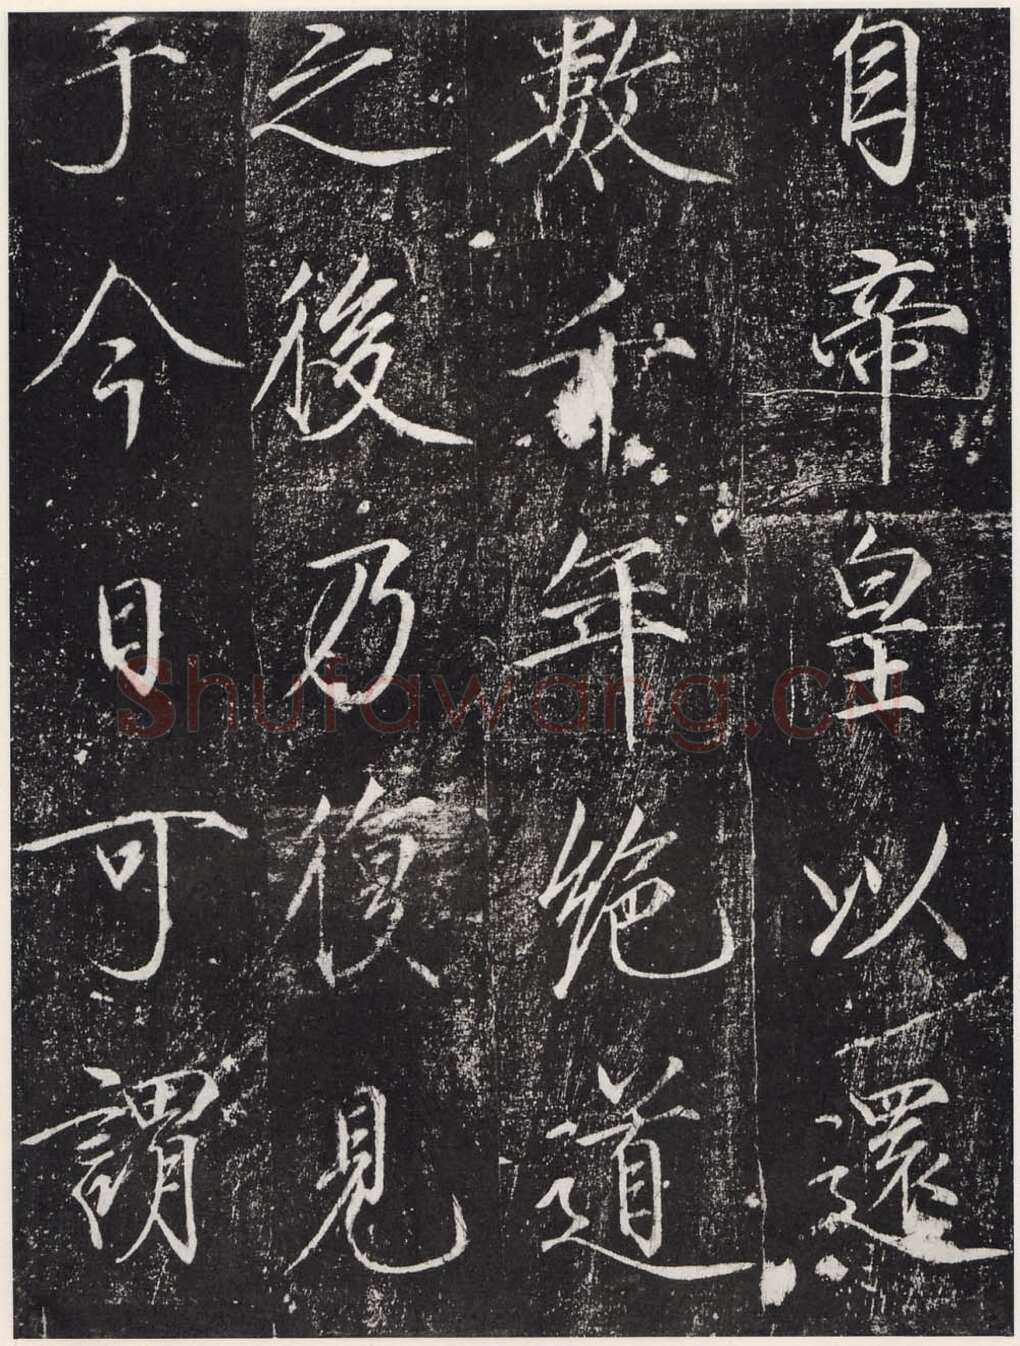 自帝皇以還
數千年絶道
之後乃復見
于今日可謂
Shufawang.CN